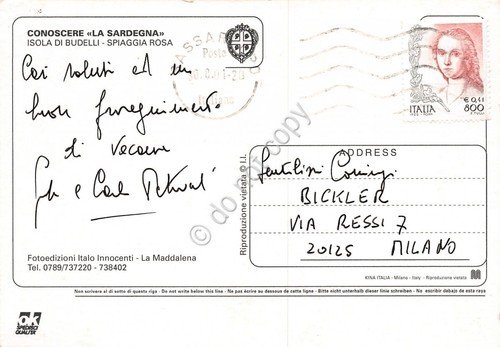 CONOSCERE «LA SARDEGNA»
ISOLA DI BUDELLI - SPIAGGIA ROSA
SASSARI
Poste
€ 0,41
ITALIA 800
Cari saluti ed un
buon proseguimento
di vacanze
e Carlo
ADDRESS
Gentilissimi Coniugi
BICKLER
VIA RESSI 7
20125 MILANO
Riproduzione vietata
© do not copy
Fotoedizioni Italo Innocenti - La Maddalena
Tel. 0789/737220 - 738402
KINA ITALIA - Milano - Italy - Riproduzione vietata
Non scrivere al di sotto di questa riga - Do not write below this line - Ne pas écrire au dessous de cette ligne - Bitte nicht unterhalb dieser linie schreiben - No escribir debajo de esta raya
OK
SPEDIRSI
QUALITA'